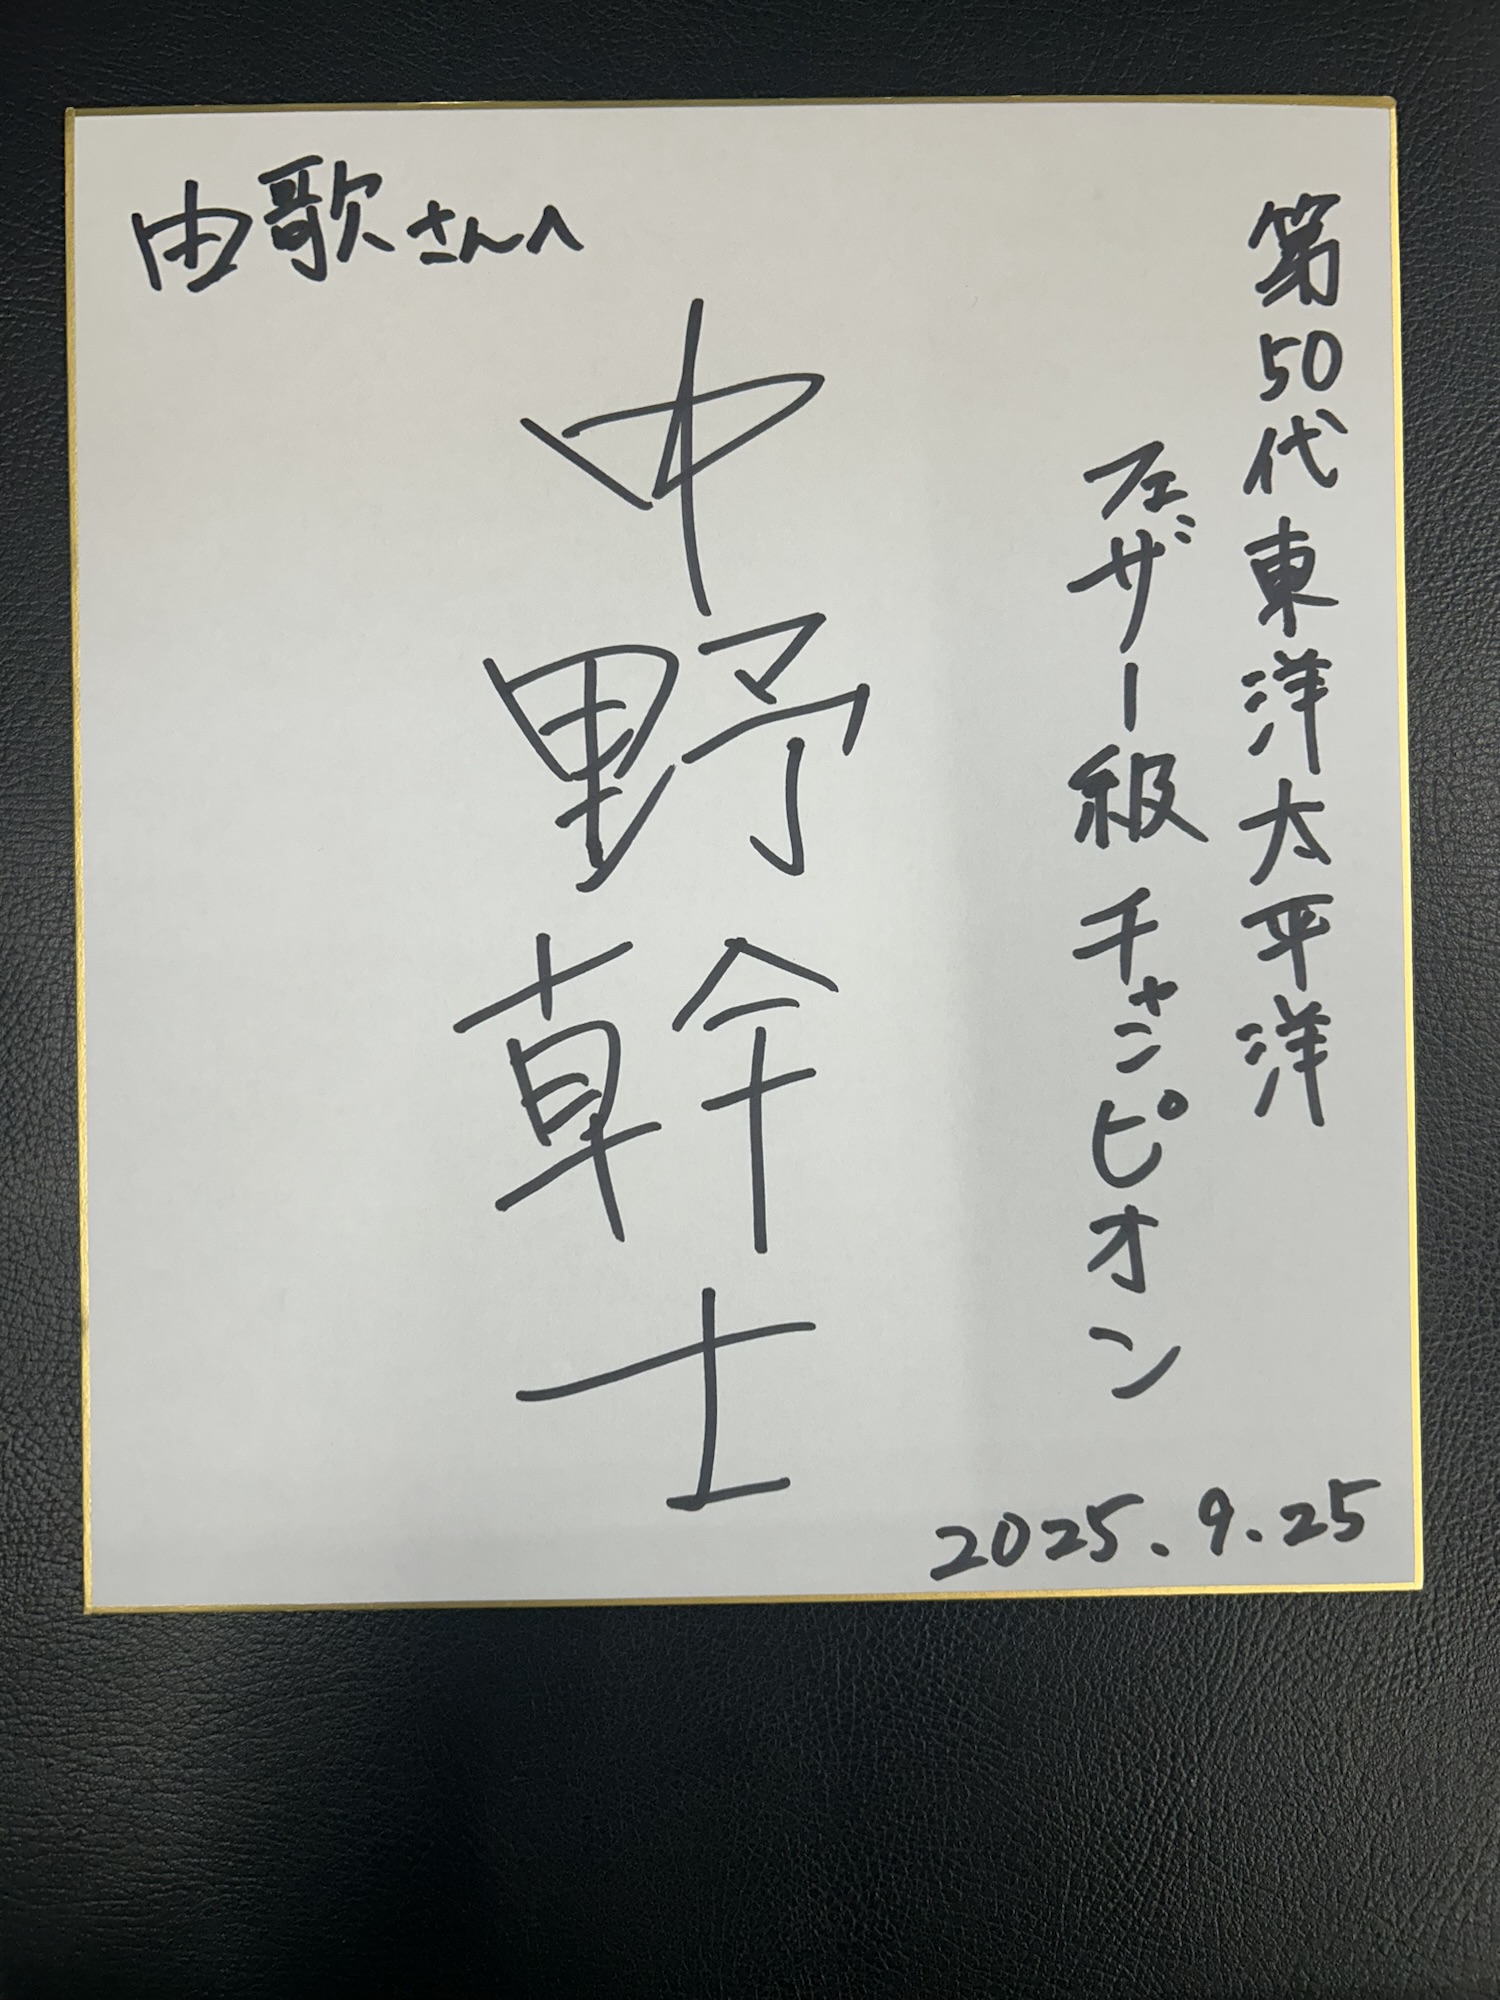 第50代東洋太平洋
フェザー級チャンピオン
由歌さんへ
中野幹士
2025.9.25